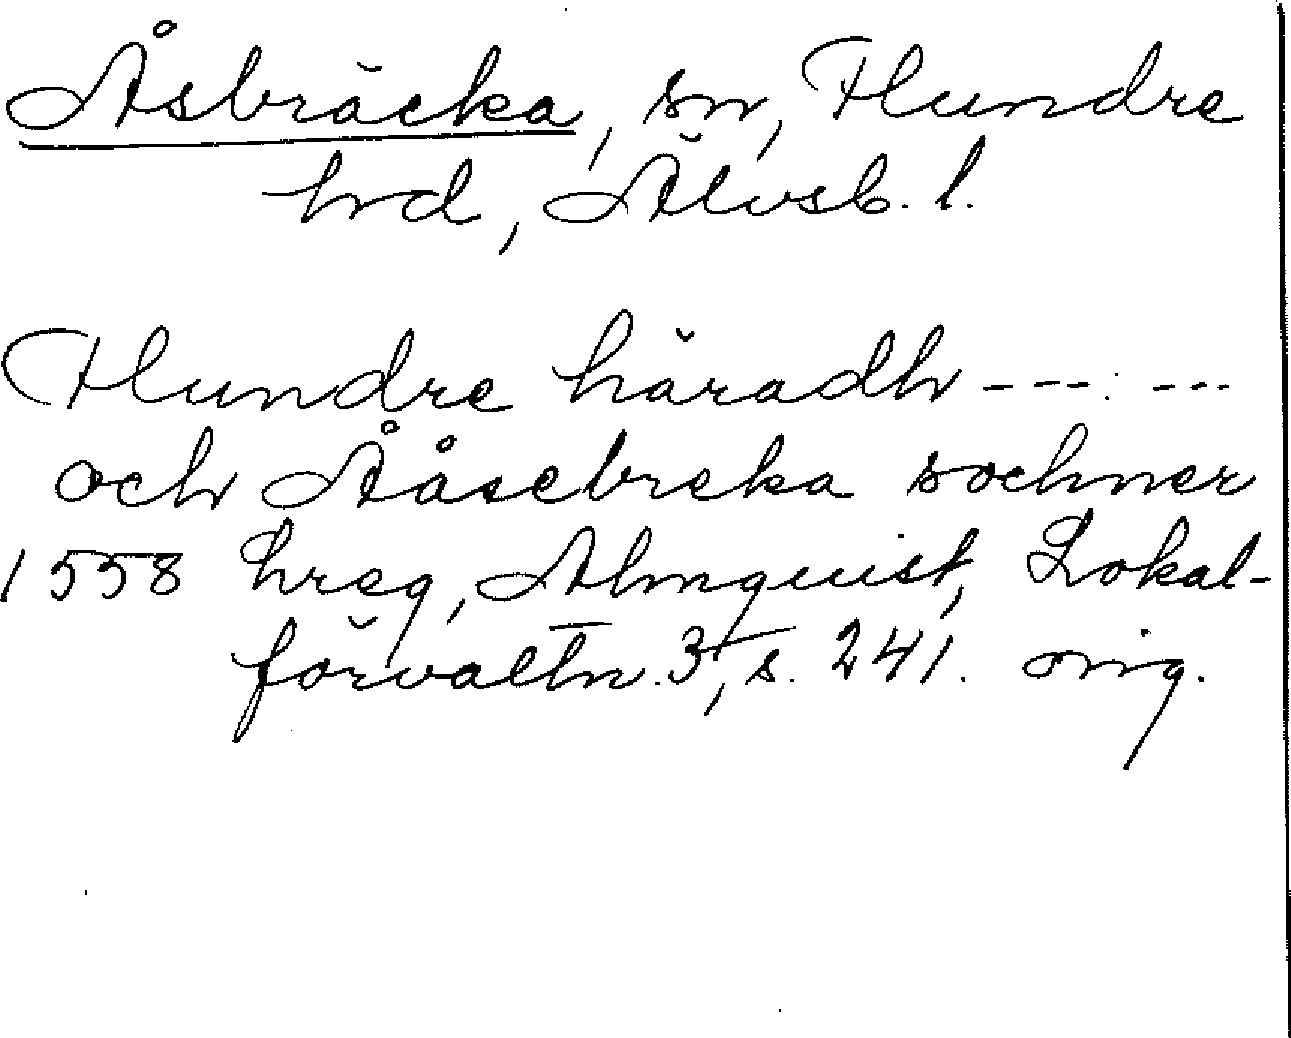 Åsbräcka, sn, Flundre
hd, Älvsb. l.
Flundre häradh --- : ---
och Ååsebreka sochner
1558 hreg, Almquist, Lokal-
förvaltn. 3, s. 241. orig.